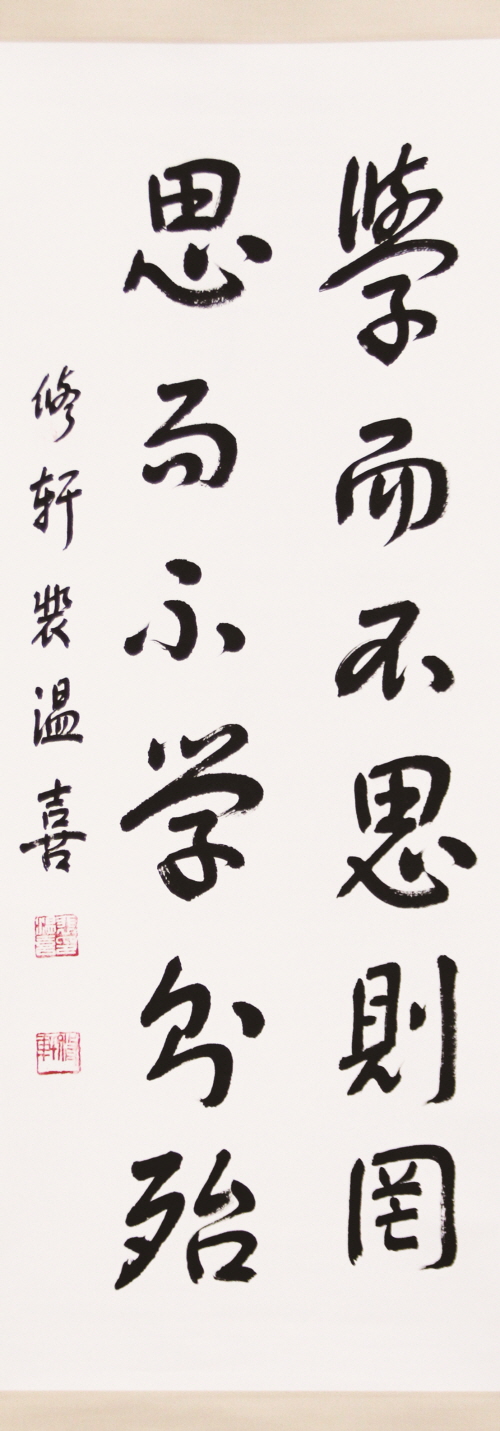 學而不思則罔
思而不学則殆
修軒裴温喜